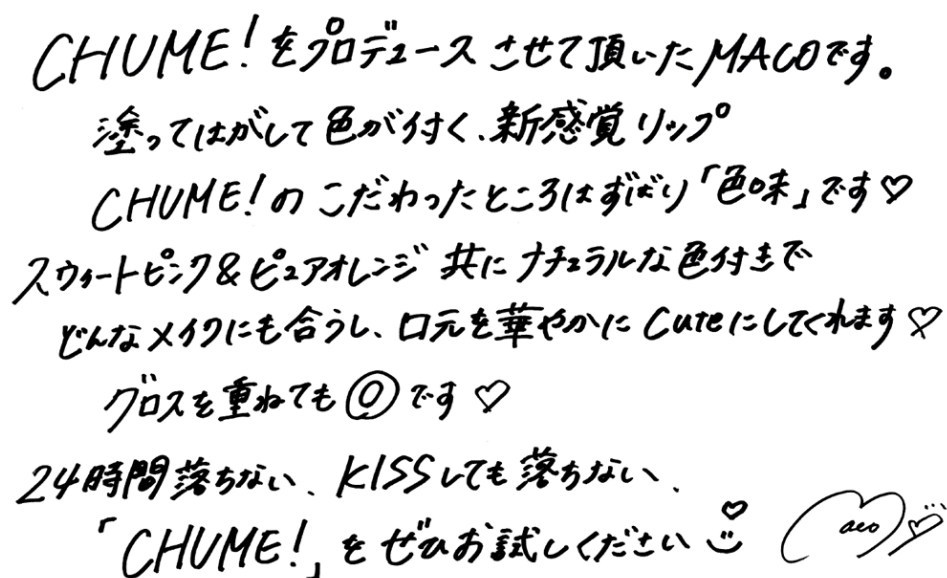 CHUME!をプロデュースさせて頂いたMACOです。
塗ってはがして色が付く、新感覚リップ
CHUME!のこだわったところはずばり「色味」です♡
スウィートピンク&ピュアオレンジ 共にナチュラルな色付きで
どんなメイクにも合うし、口元を華やかにCuteにしてくれます♡
グロスを重ねても◎です♡
24時間落ちない、KISSしても落ちない、
「CHUME!」をぜひお試しください
Maco